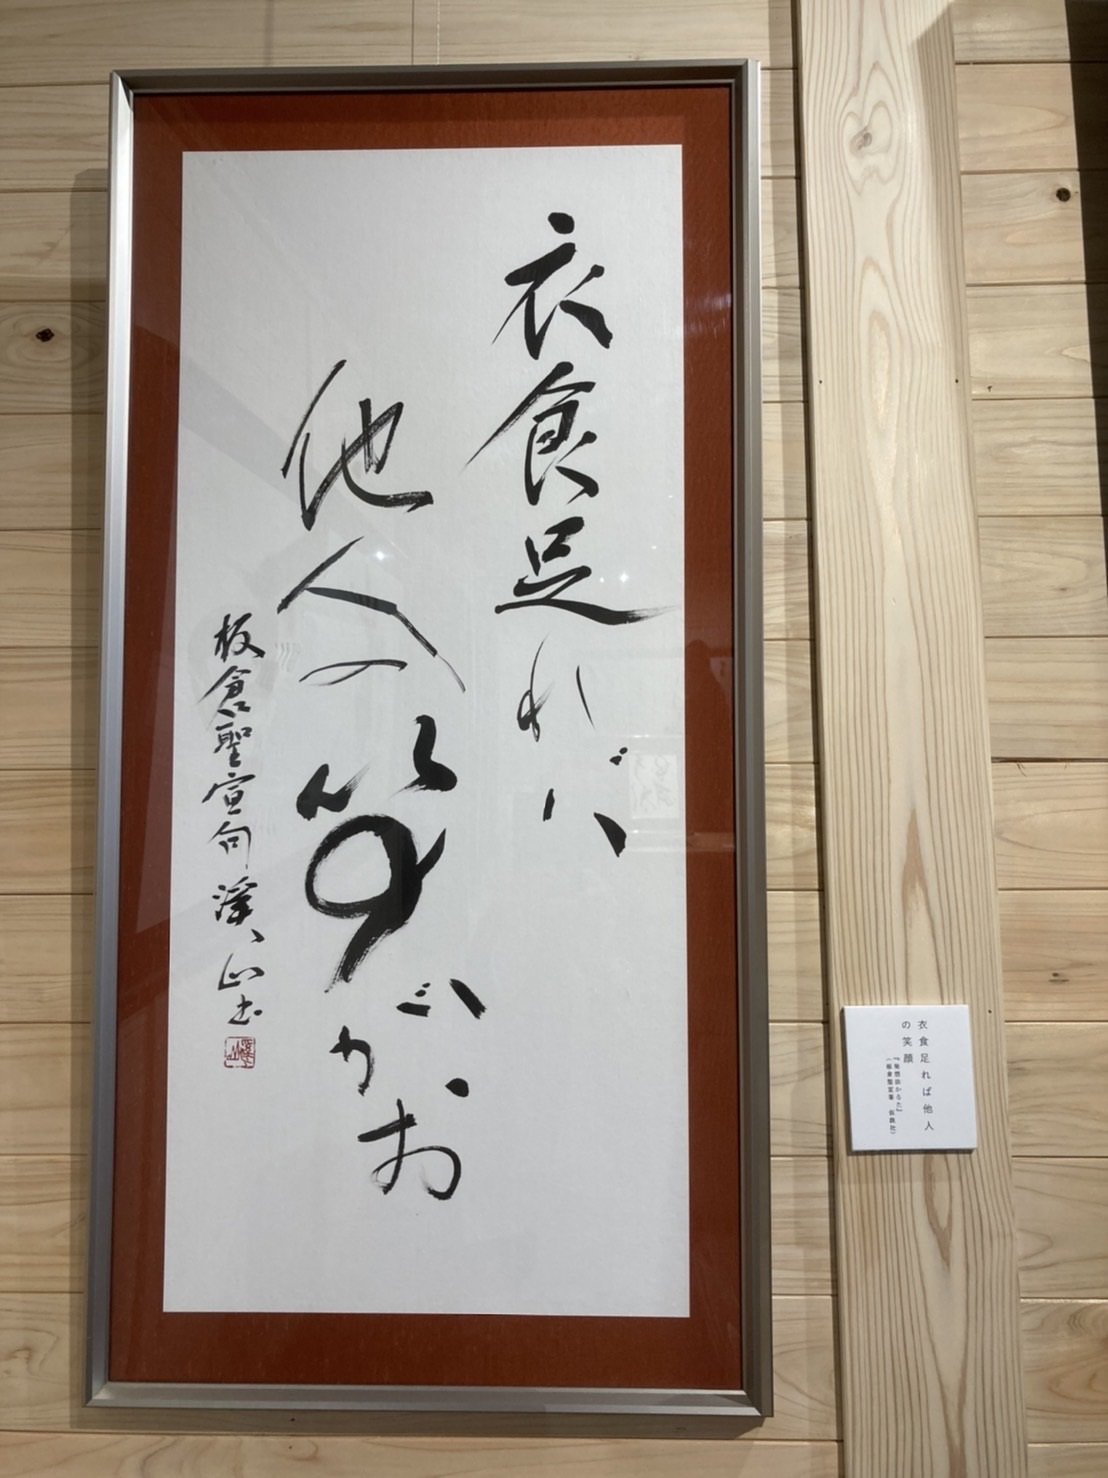 衣食足れば
他人の笑がお
板倉聖宣句 渓山書
衣食足れば他人
の笑顔
『発想法かるた』
(板倉聖宣著 仮説社)